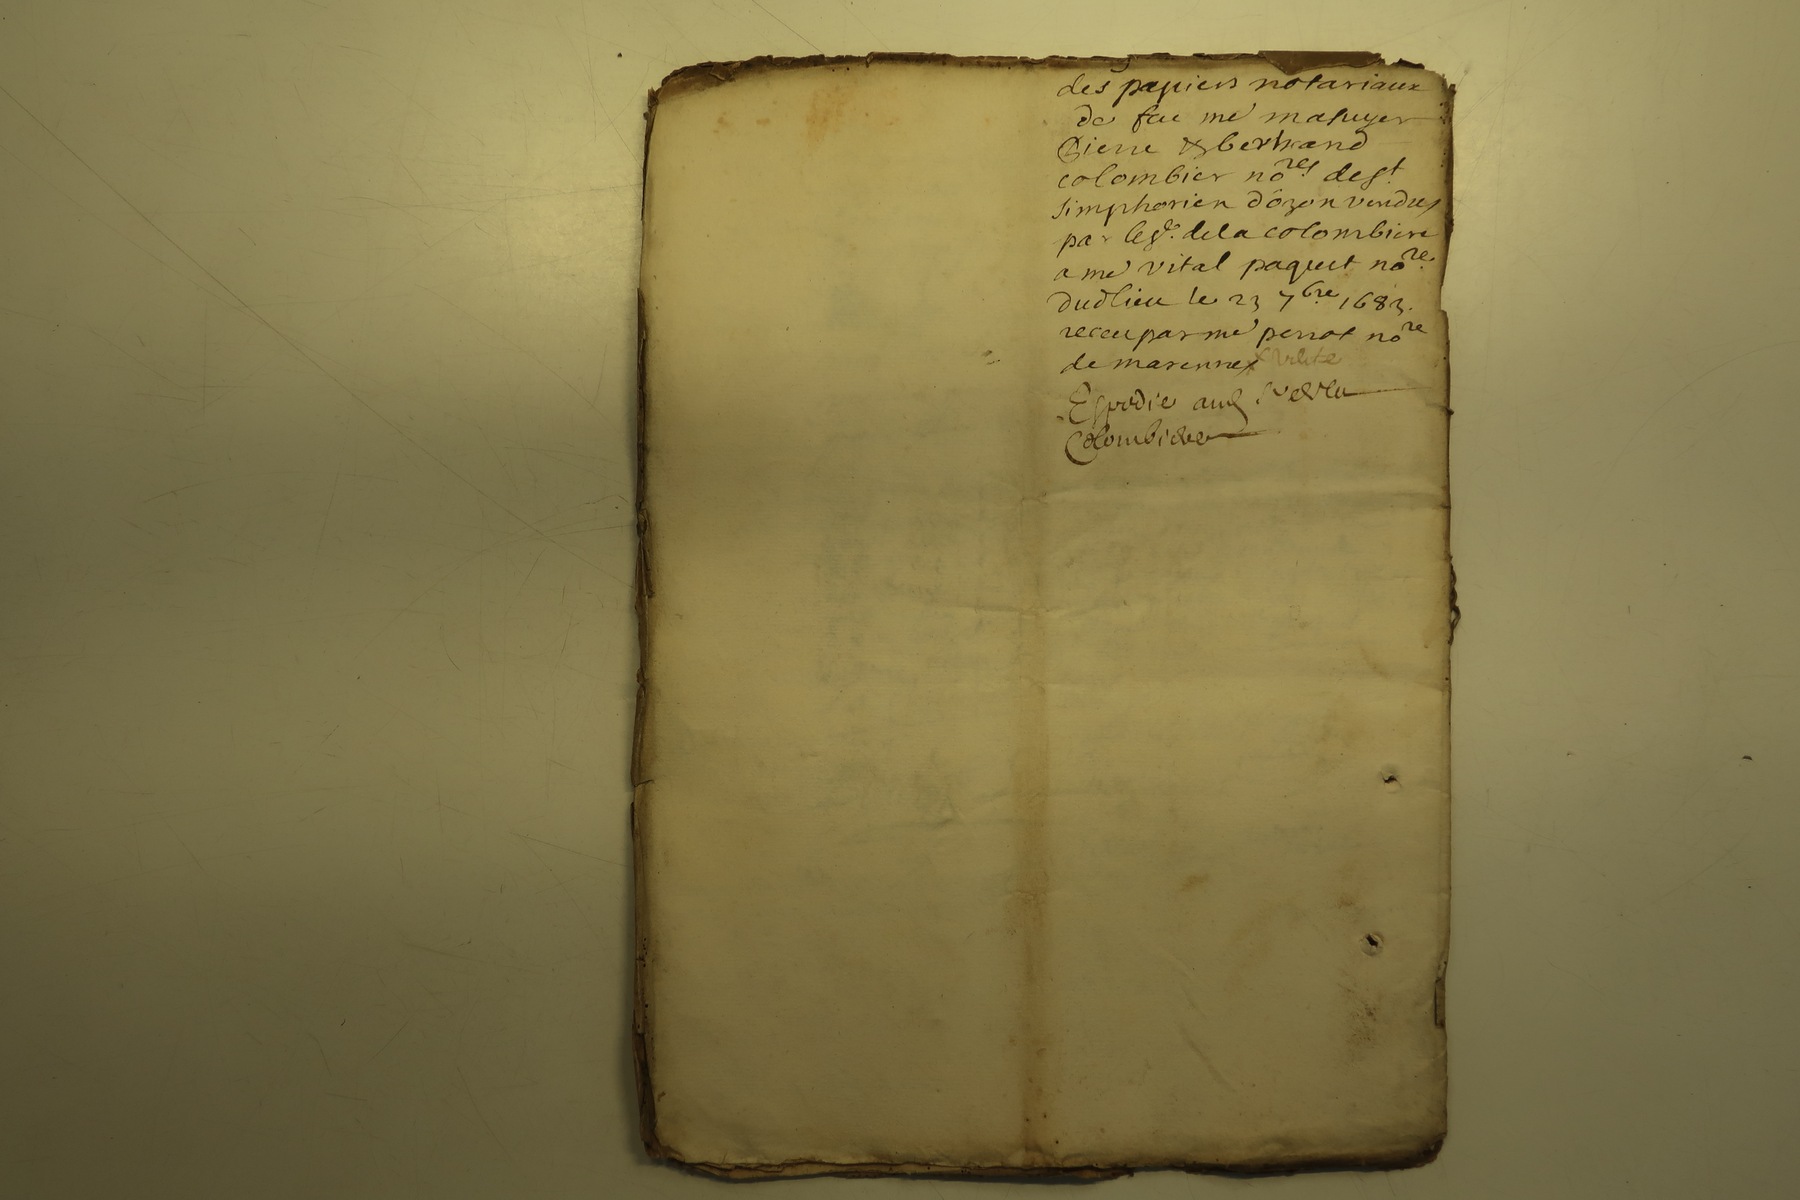 des papiers notariaux
de feu me masuyer
Pierre & bertrand
colombier no.res de st
simphorien d'ozon vendus
par le sr. de la colombiere
a me vital paquet no.re
dud lieu le 23 7bre 1683.
receu par me perrot no.re
de marennes
Expedie aud Sr de la
Colombiere